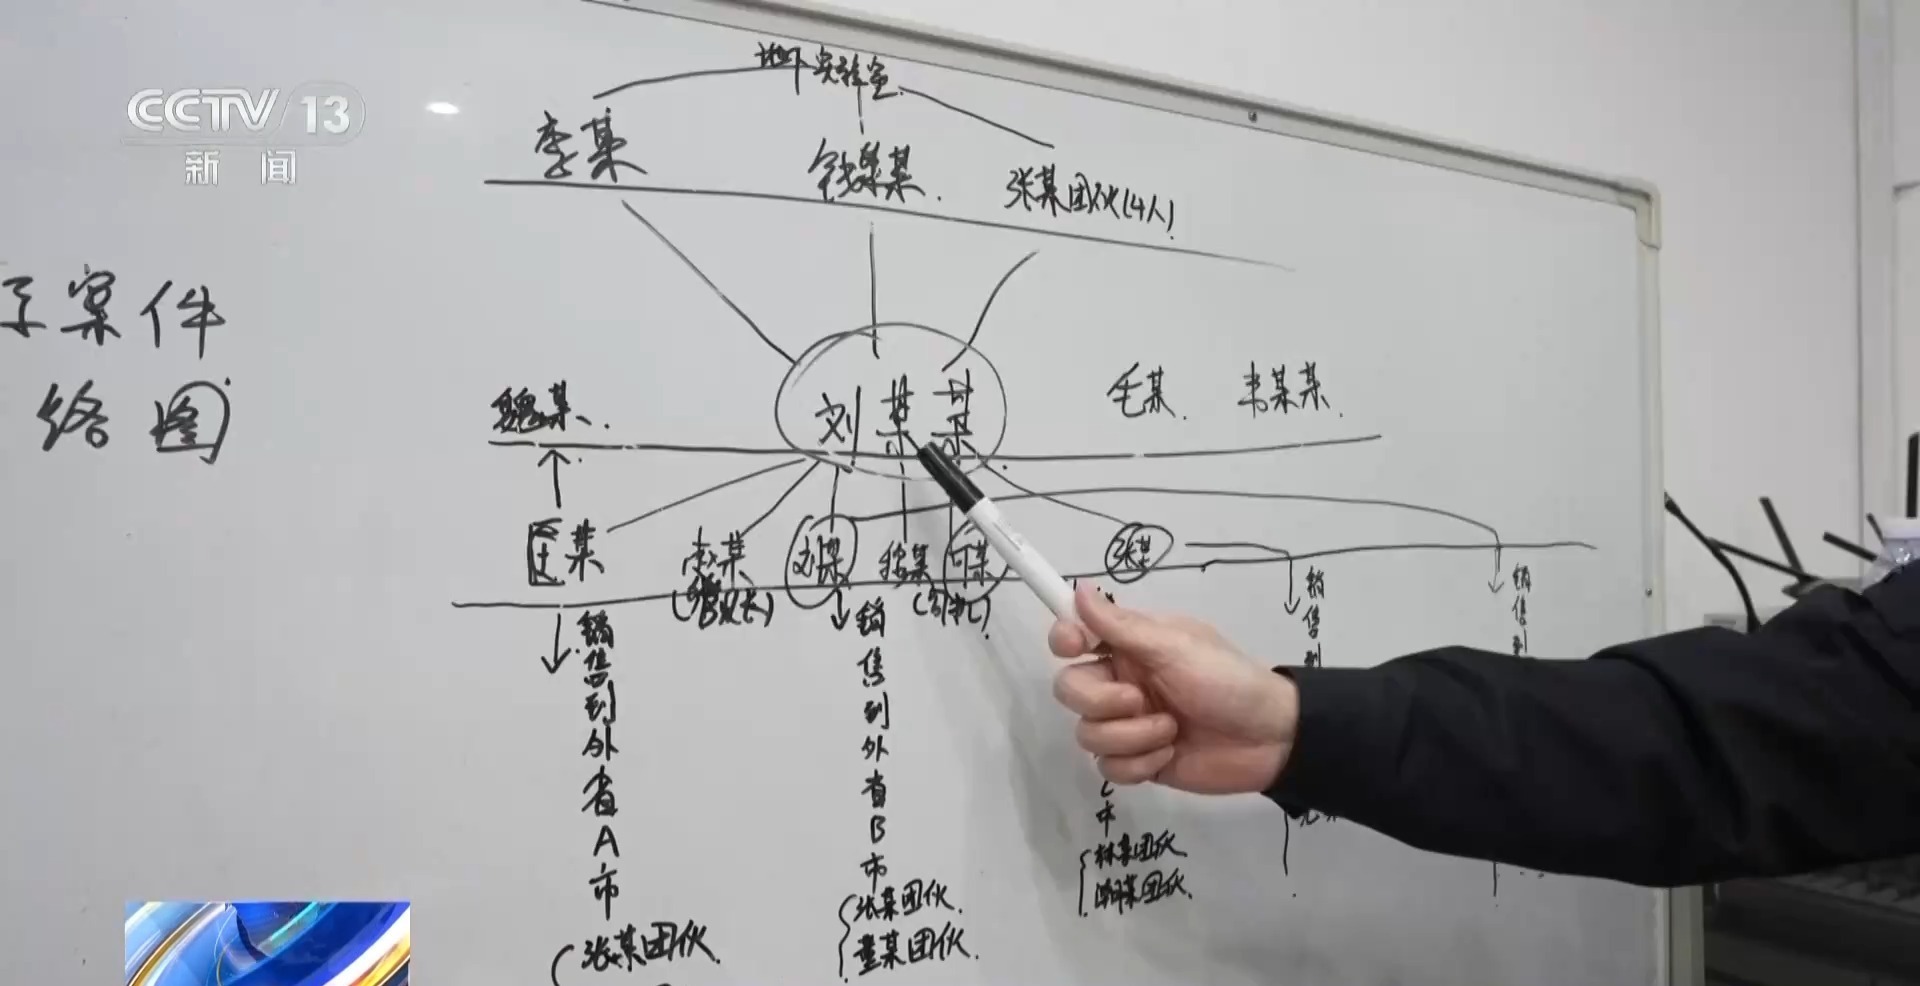 CCTV 13
新闻
地下实验室
李某
钱某某.
张某团伙(4人)
案件
络图
魏某.
刘某某
毛某.
韦某某.
某
某
刘某
某
张某
销售到外省A市
张某团伙.
销售到外省B市
张某团伙.
董某团伙.
市
林某团伙.
某团伙.
销售到
销售到